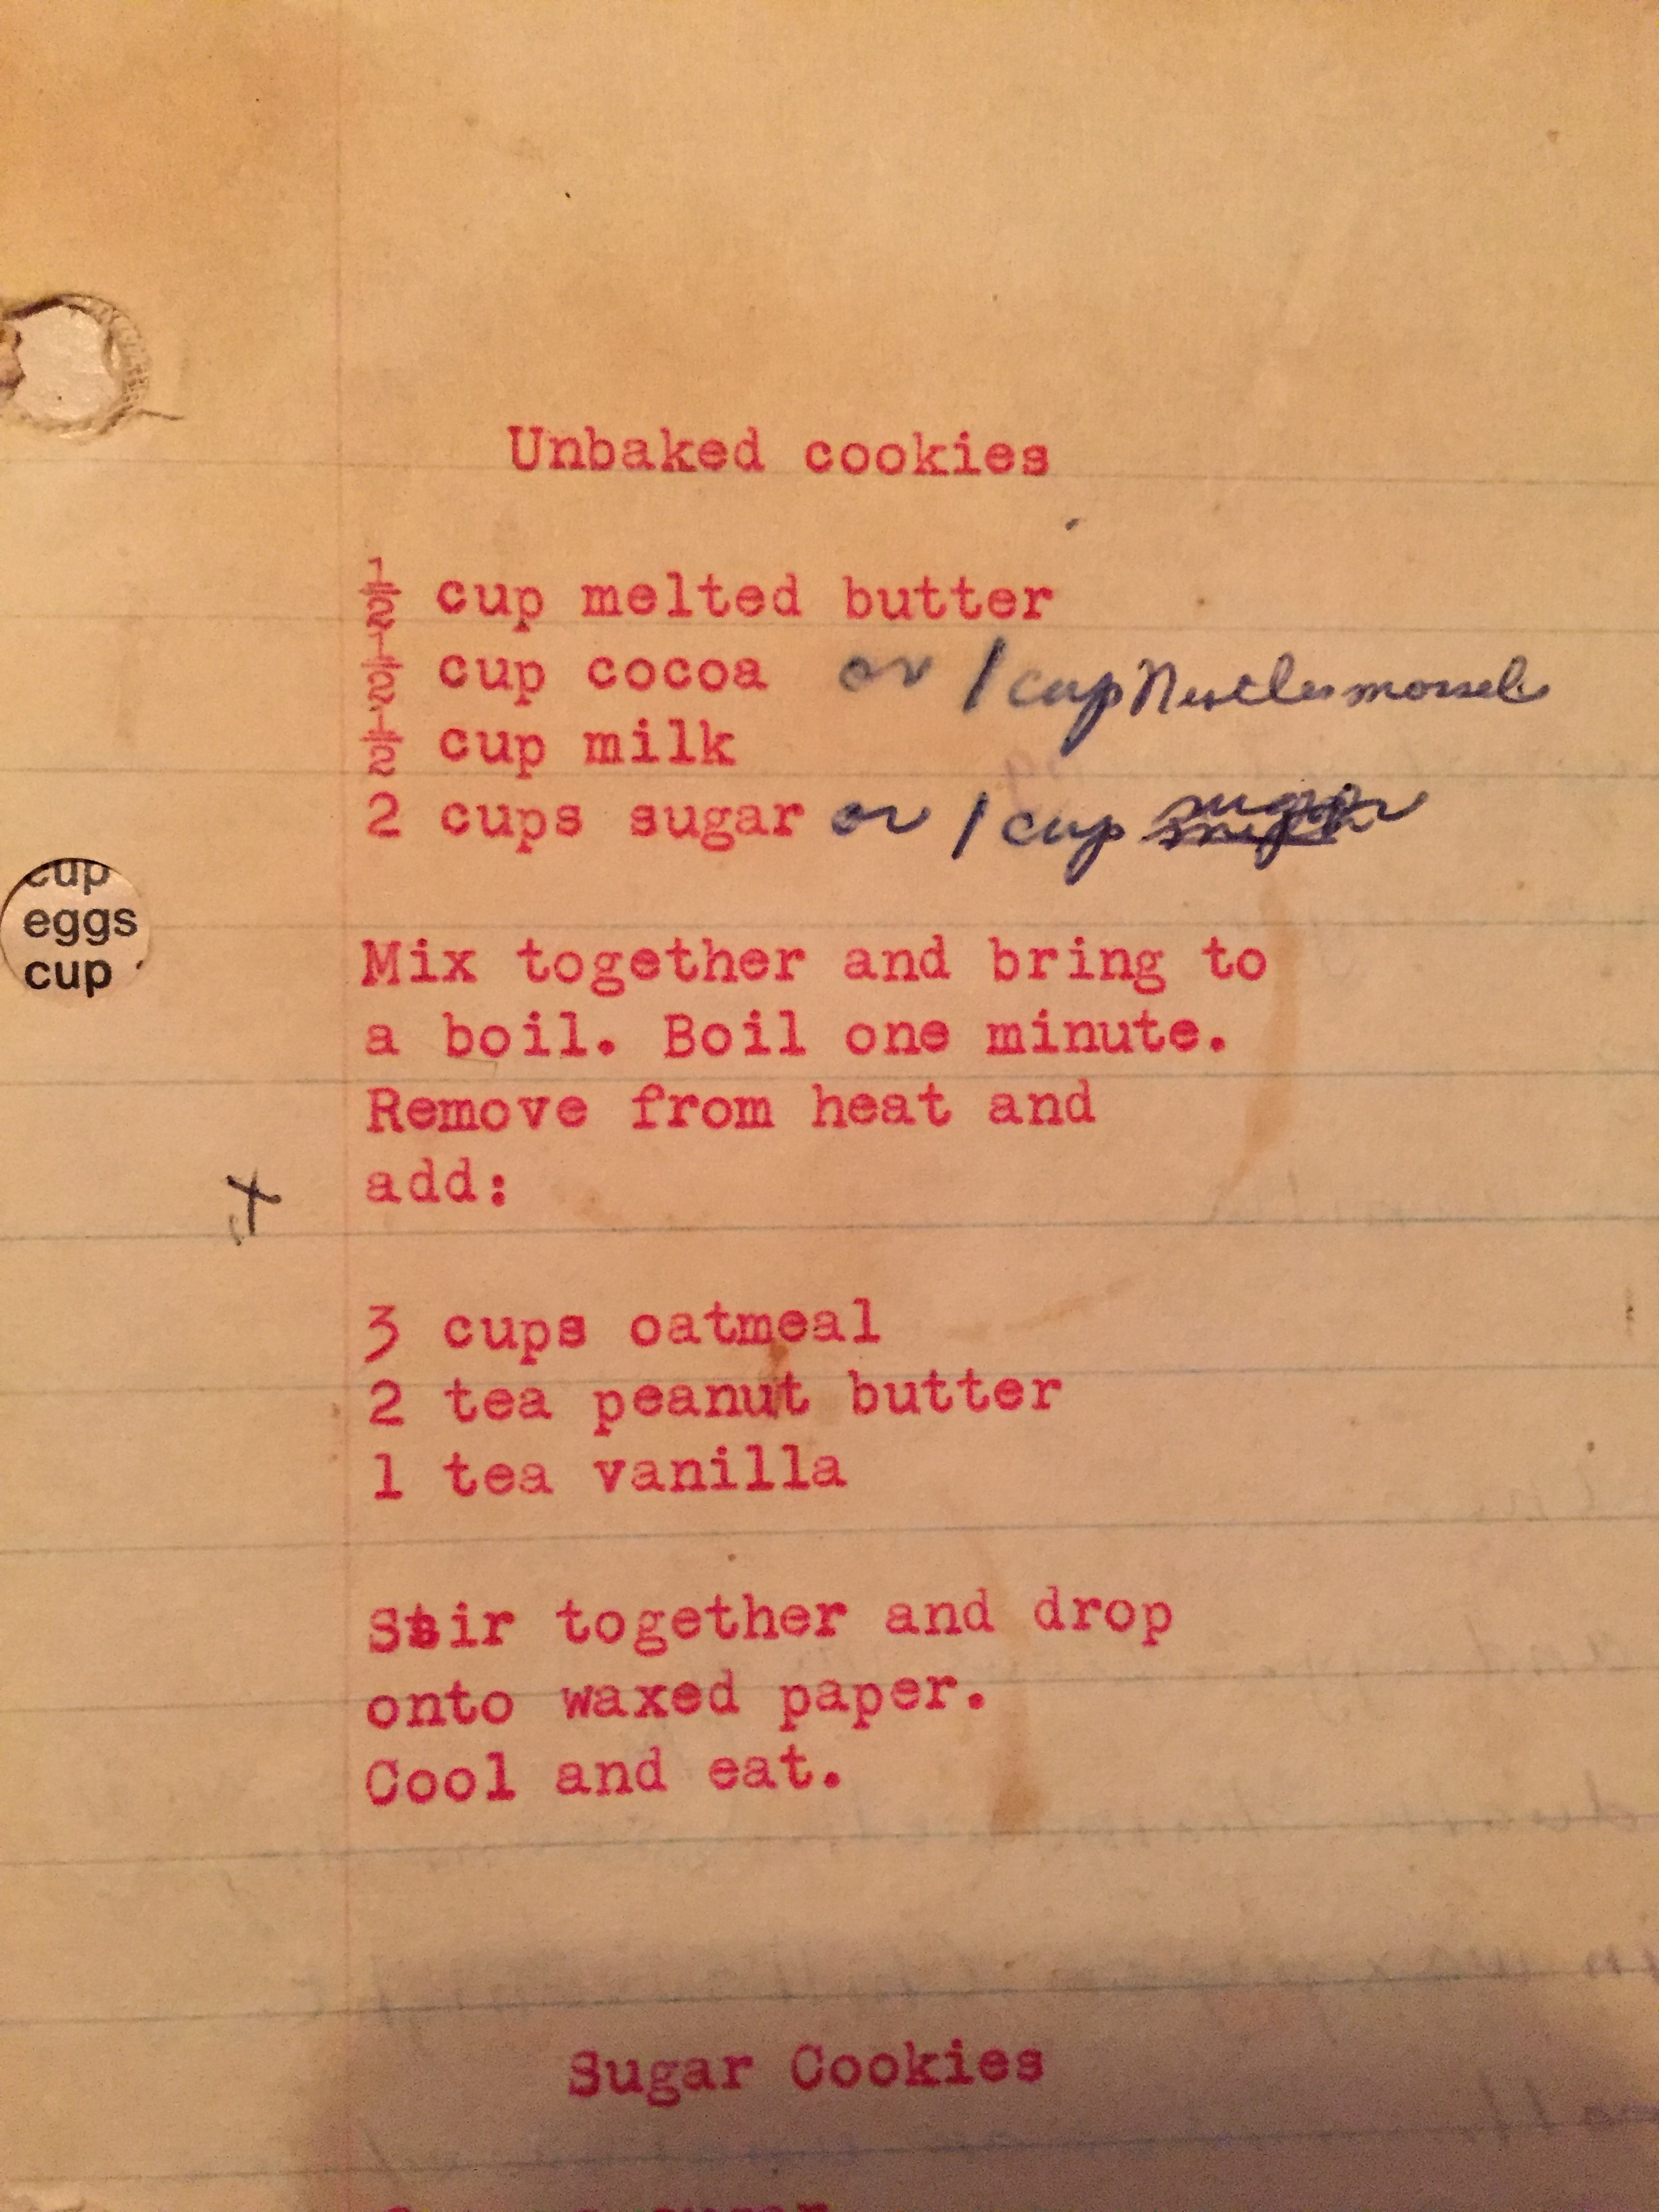 Unbaked cookies
½ cup melted butter
½ cup cocoa or 1 cup Nestles morsels
½ cup milk
2 cups sugar or 1 cup sugar
cup
eggs
cup
Mix together and bring to
a boil. Boil one minute.
Remove from heat and
x add:
3 cups oatmeal
2 tea peanut butter
1 tea vanilla
Stir together and drop
onto waxed paper.
Cool and eat.
Sugar Cookies